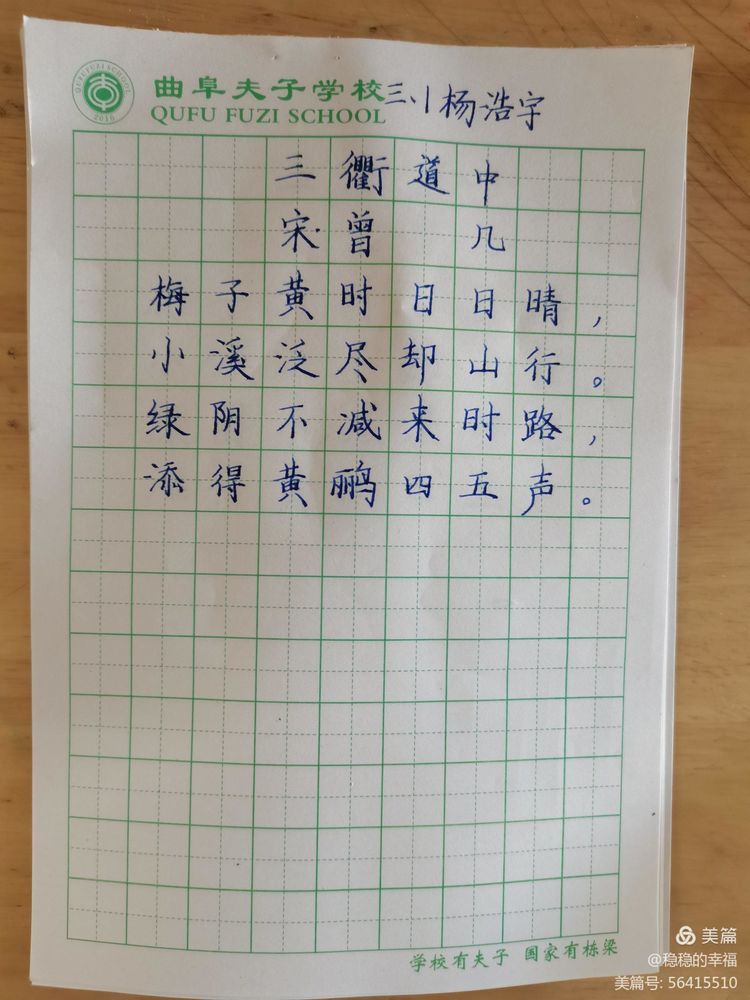 曲阜夫子学校
QUFU FUZI SCHOOL
三、1 杨浩宇
QUFUFUZI SCHOOL
2016
三衢道中
宋 曾 几
梅子黄时日日晴，
小溪泛尽却山行。
绿阴不减来时路，
添得黄鹂四五声。
学校有夫子 国家有栋梁
美篇
@稳稳的幸福
美篇号: 56415510